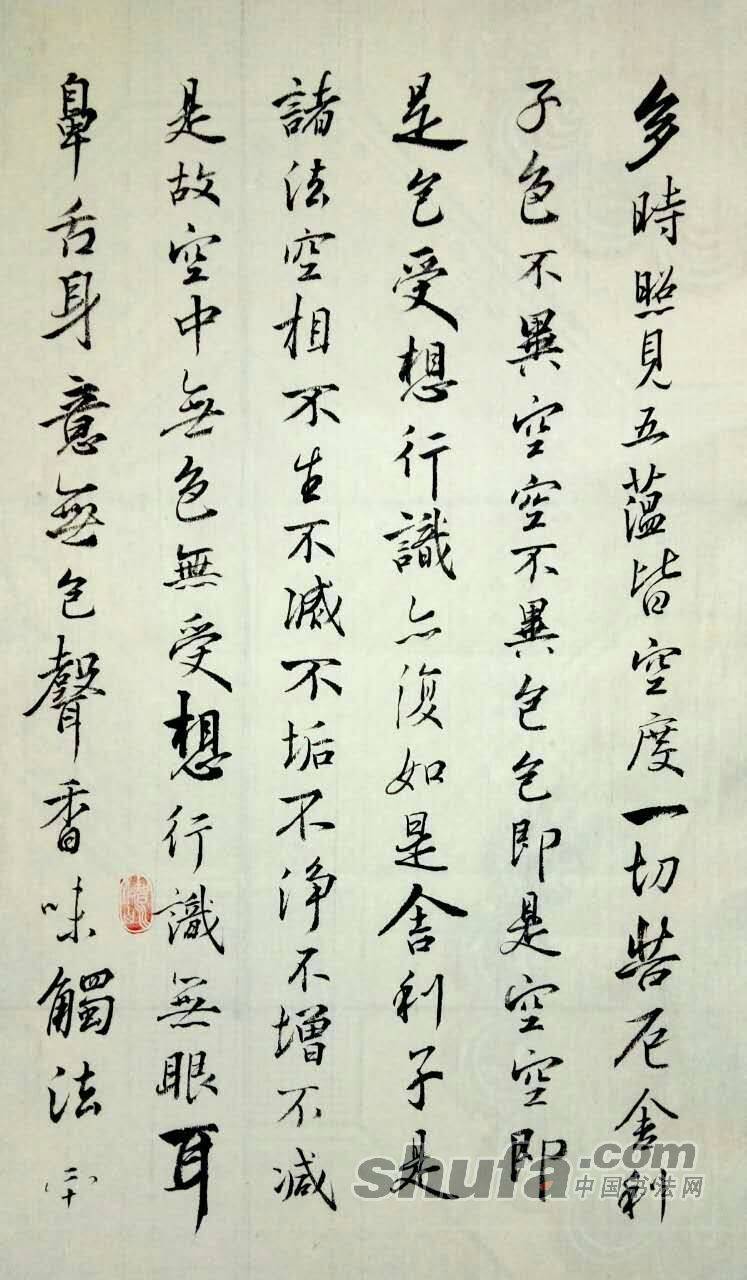 多時照見五蘊皆空度一切苦厄舍利
子色不異空空不異色色即是空空即
是色受想行識亦復如是舍利子是
諸法空相不生不滅不垢不淨不增不減
是故空中無色無受想行識無眼耳
鼻舌身意無色聲香味觸法
shufa.com
中国书法网